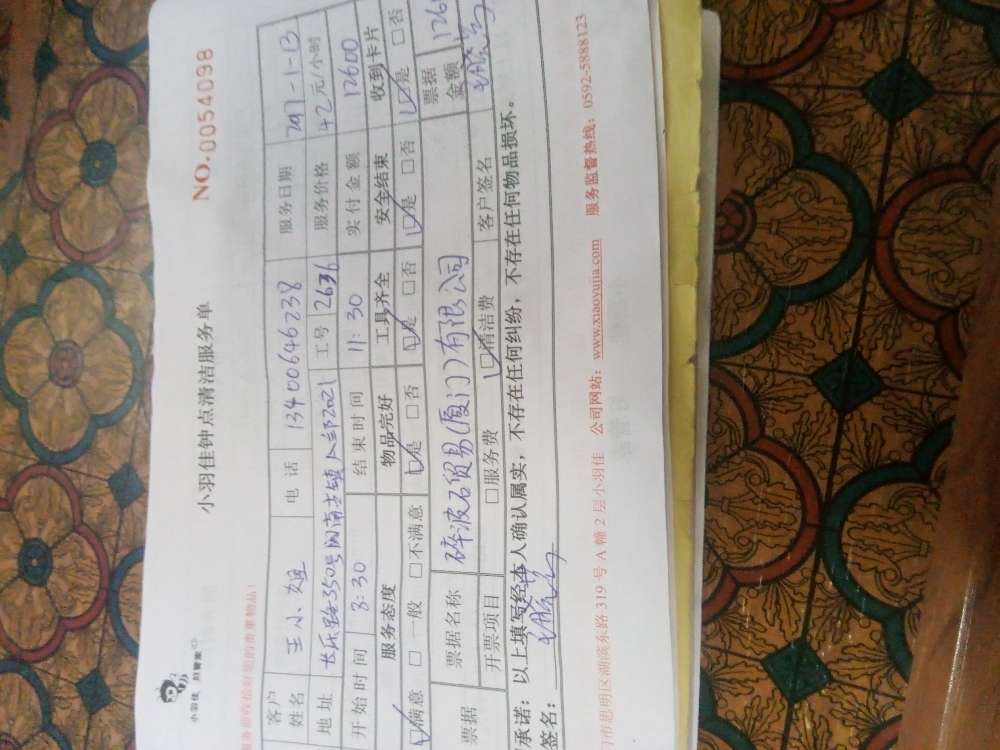 小羽佳 好管家
小羽佳钟点清洁服务单
NO.0054098
贵重物品！
客户姓名 王小姐 电话 13400646238 服务日期
地址 工号 2636 服务价格 42元/小时
开始时间 8:30 结束时间 11:30 实付金额 12600
服务态度 物品完好 工具齐全 安全结束 收到卡片
满意 □一般 □不满意 是 □否 是 □否 是 □否 是 □否
票据 票据名称 碎波石贸易(厦门)有限公司 票据金额 126
开票项目 □服务费 清洁费 客户签名
承诺：以上填写经本人确认属实，不存在任何纠纷，不存在任何物品损坏。
签名：
门市思明区湖滨东路 319 号 A 幢 2 层小羽佳 公司网站：www.xiaoyujia.com 服务监督热线：0592-5888123